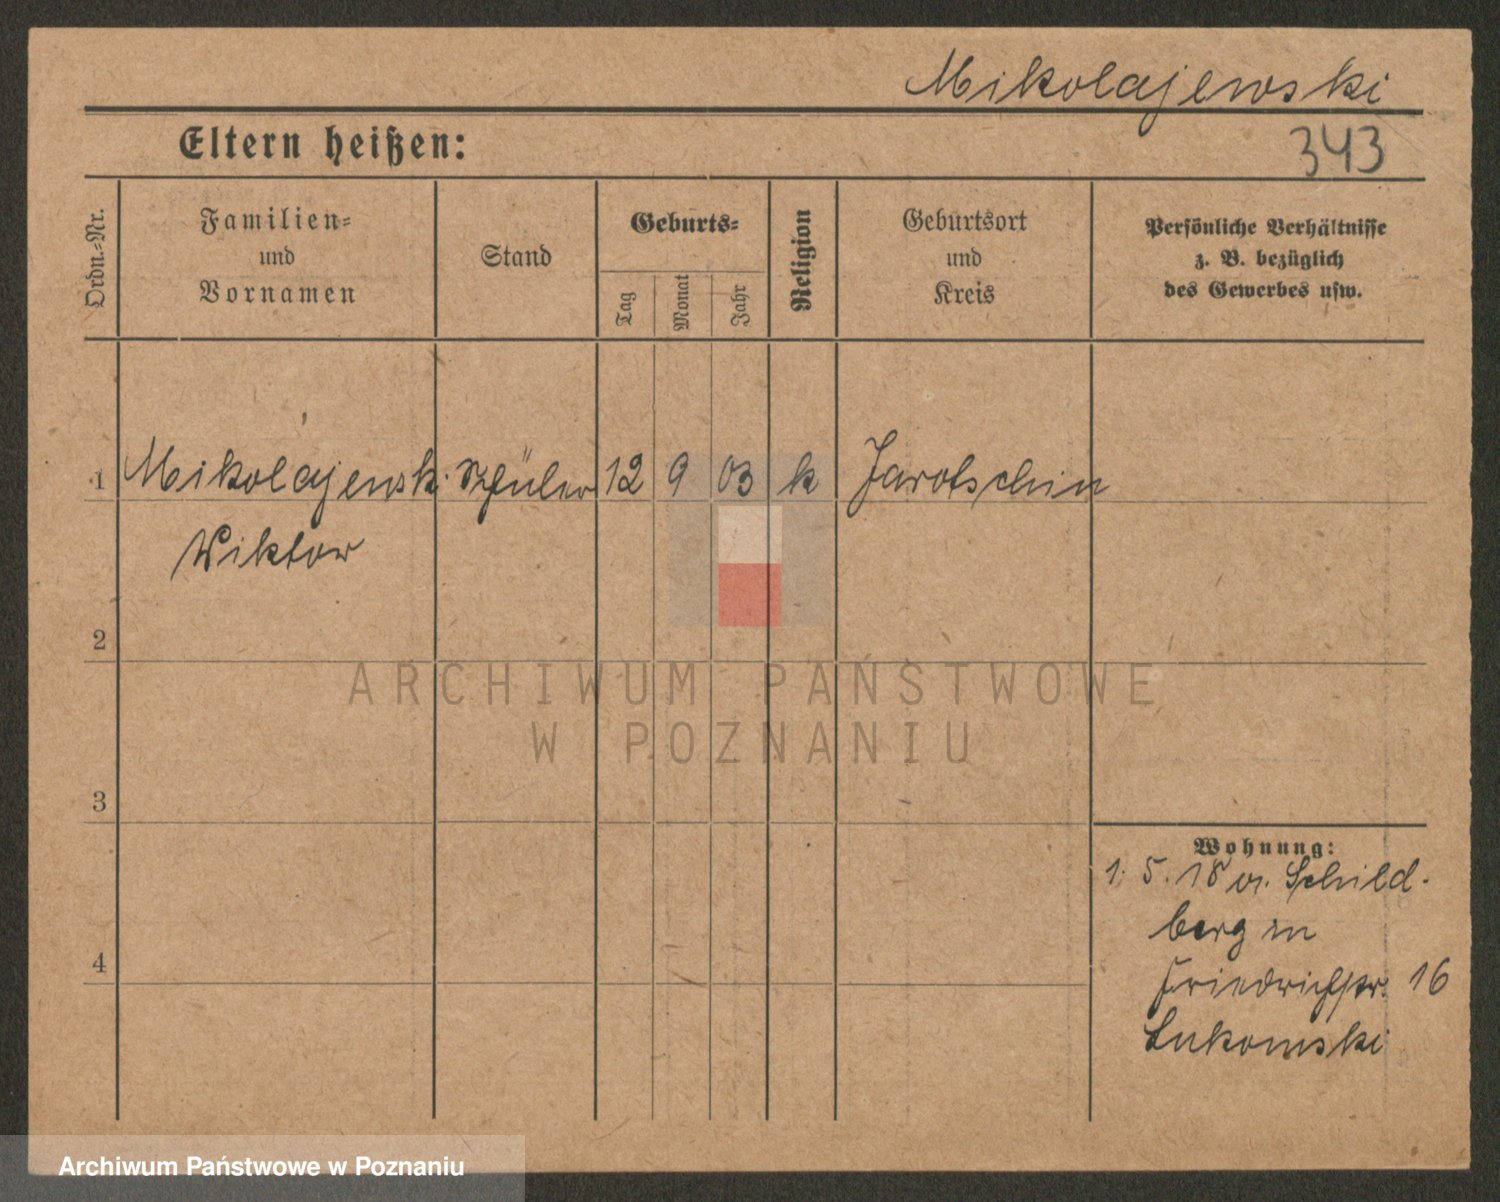 Mikolajewski
343
Eltern heißen:
Ordn.-Nr.
Familien-
und
Vornamen
Stand
Geburts-
Tag
Monat
Jahr
Religion
Geburtsort
und
Kreis
Persönliche Verhältnisse
z. B. bezüglich
des Gewerbes usw.
1 Mikolajewsk. Schüler 12 9 03 k Jarotschin
Viktor
2
3
4
Wohnung:
1. 5. 18 v. Schild-
berg in
Friedrichstr. 16
Lukomski
ARCHIWUM PAŃSTWOWE
W POZNANIU
Archiwum Państwowe w Poznaniu